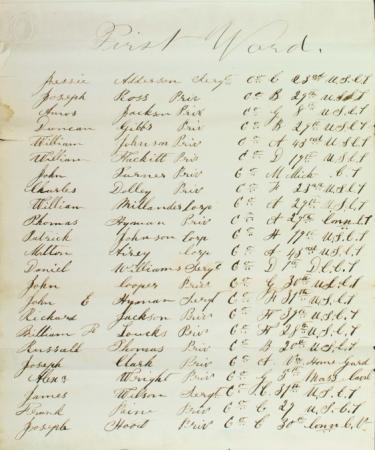 First Ward.
Jessie Adderson Sergt Co C 23rd U.S.C.T
Joseph Ross Priv Co B 29th U.S.C.T
Amos Jackson Priv Co G 8th U.S.C.T
Duncan Gibbs Priv Co B 29th U.S.C.T
William Johnson Priv Co A 43rd U.S.C.T
William Hackitt Priv Co D 19th U.S.C.T
John Turner Priv Co M Mich C.T
Charles Dolley Priv Co K 23rd U.S.C.T
William Millander Corp Co A 29th U.S.C.T
Thomas Hyman Priv Co A 29th Conn C.T
Patrick Johnson Corp Co H 19th U.S.C.T
Milton Airey Corp Co A 43rd U.S.C.T
Daniel Williams Sergt Co D 1st D.C.C.T
John Cooper Priv Co G 30th U.S.C.T
John E Hyman Sergt Co F 37th U.S.C.T
Richard Jackson Priv Co F 31st U.S.C.T
William R Loucks Priv Co H 2 U.S.C.T
Russall Thomas Priv Co B 20th U.S.C.T
Joseph Clark Priv Co A Va Home Gard
Alex Wright Priv Co G 5th Mass Cav
James Wilson Sergt Co C 31st U.S.C.T
Frank Paine Priv Co C 27 U.S.C.T
Joseph Hood Priv Co C 30th Conn C.V.